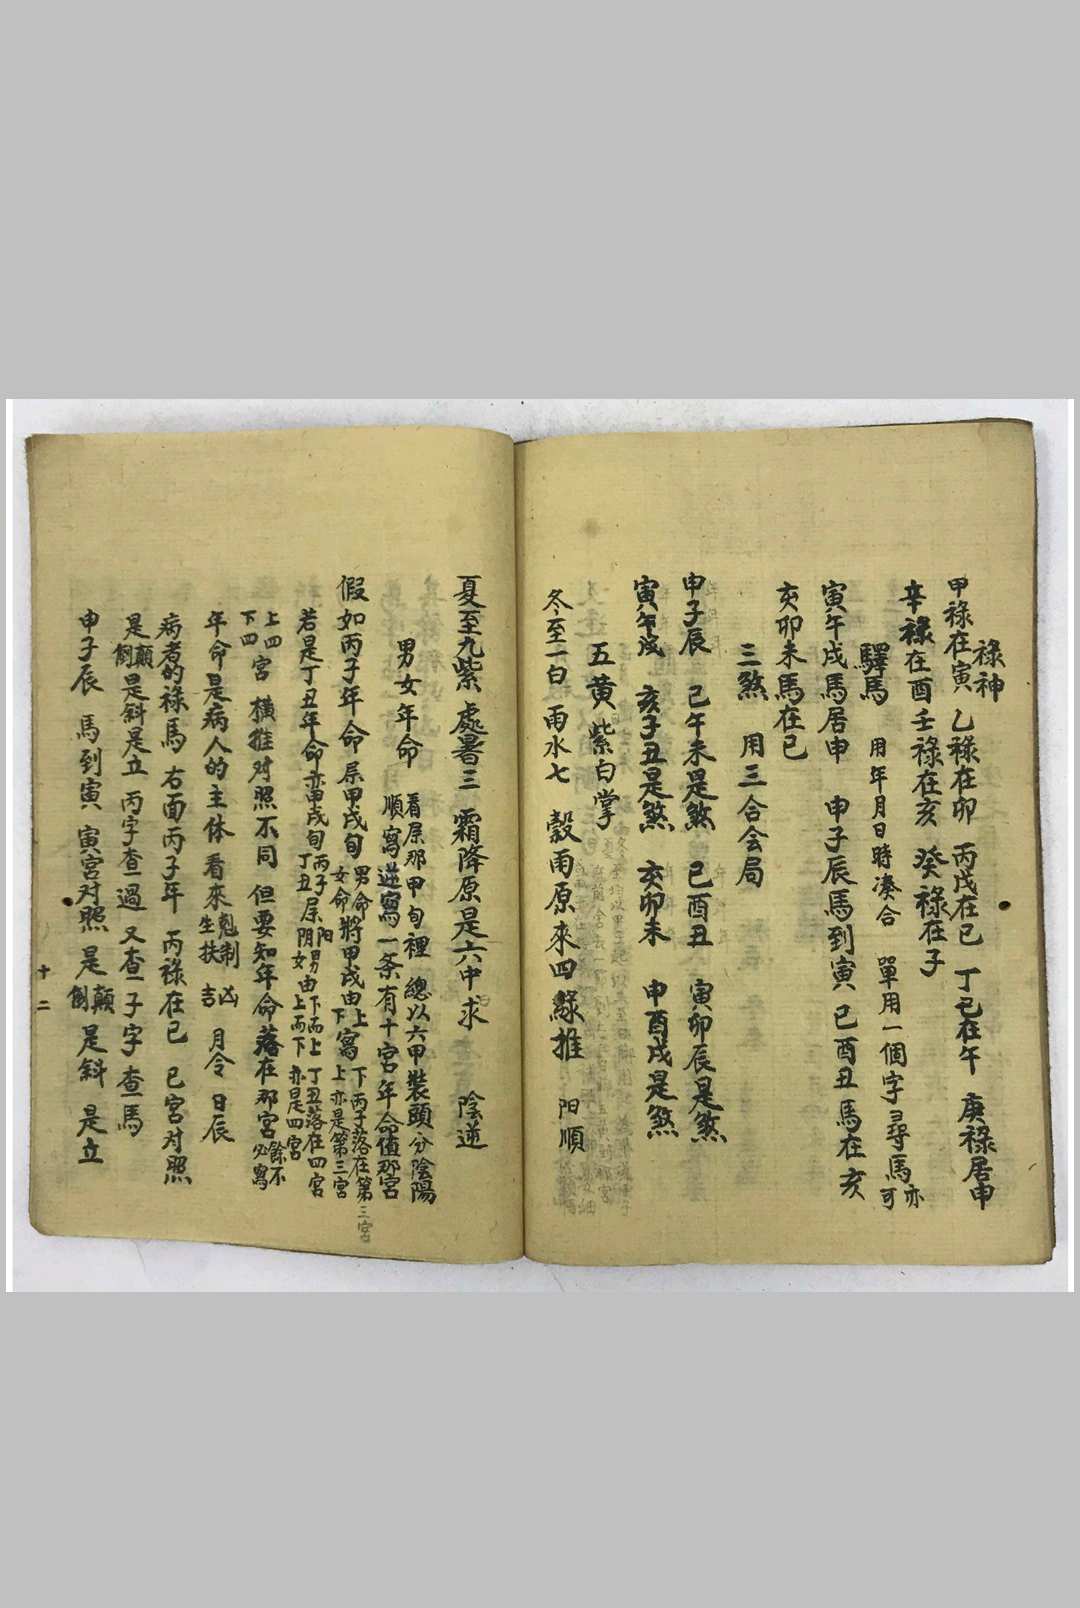 祿神
甲祿在寅 乙祿在卯 丙戊在巳 丁己在午 庚祿居申
辛祿在酉 壬祿在亥 癸祿在子
驛馬 用年月日時凑合 單用一個字尋馬亦可
寅午戌馬居申 申子辰馬到寅 巳酉丑馬在亥
亥卯未馬在巳
三煞 用三合会局
申子辰 巳午未是煞 巳酉丑 寅卯辰是煞
寅午戌 亥子丑是煞 亥卯未 申酉戌是煞
五黄 紫白掌
冬至一白 雨水七 穀雨原來四綠推 阳順
夏至九紫 處暑三 霜降原是六中求 陰逆
男女年命 看屌那甲旬裡 總以六甲裝頭 分陰陽
順寫逆寫一条有十宮年命值那宮
假如丙子年命屌甲戌旬 男命女命將甲戌由上下寫 下上 丙子落在第三宮 亦是第三宮
若是丁丑年命亦甲戌旬 丙子丁丑屌阳阴男女由下而上上而下 丁丑落在四宮 亦是四宮
上四下四宮 横推对照不同 但要知年命落在那宮 餘不必寫
年命是病人的主体 看來 剋制凶 生扶吉 月令 日辰
病者的祿馬 右面丙子年 丙祿在巳 巳宮对照
是顛倒是斜是立 丙字查過 又查一子字 查馬
申子辰 馬到寅 寅宮对照 是顛倒 是斜 是立
十二